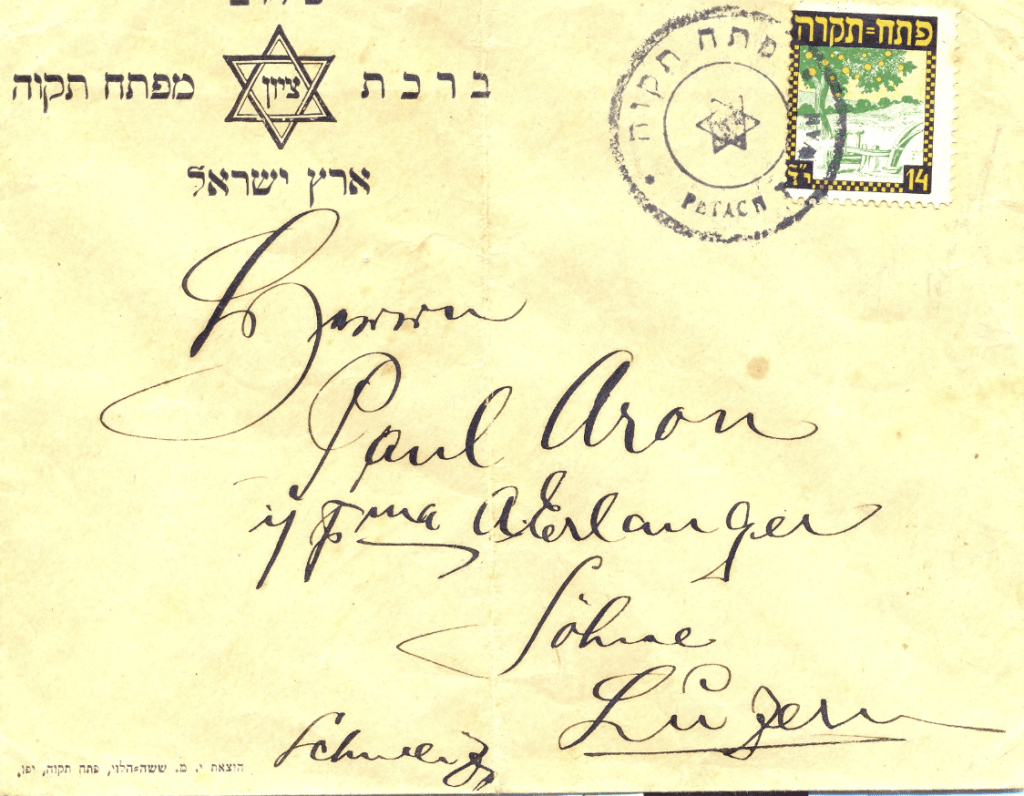 ב ר כ ת ציון מפתח תקוה
ארץ ישראל
פתח תקוה
PETACH
פתח=תקוה
י"ד 14
Herrn
Paul Aron
i/ Fma A. Erlanger
Söhne
Luzern
Schweiz
הוצאת י. מ. ששה=הלוי, פתח תקוה, יפו.